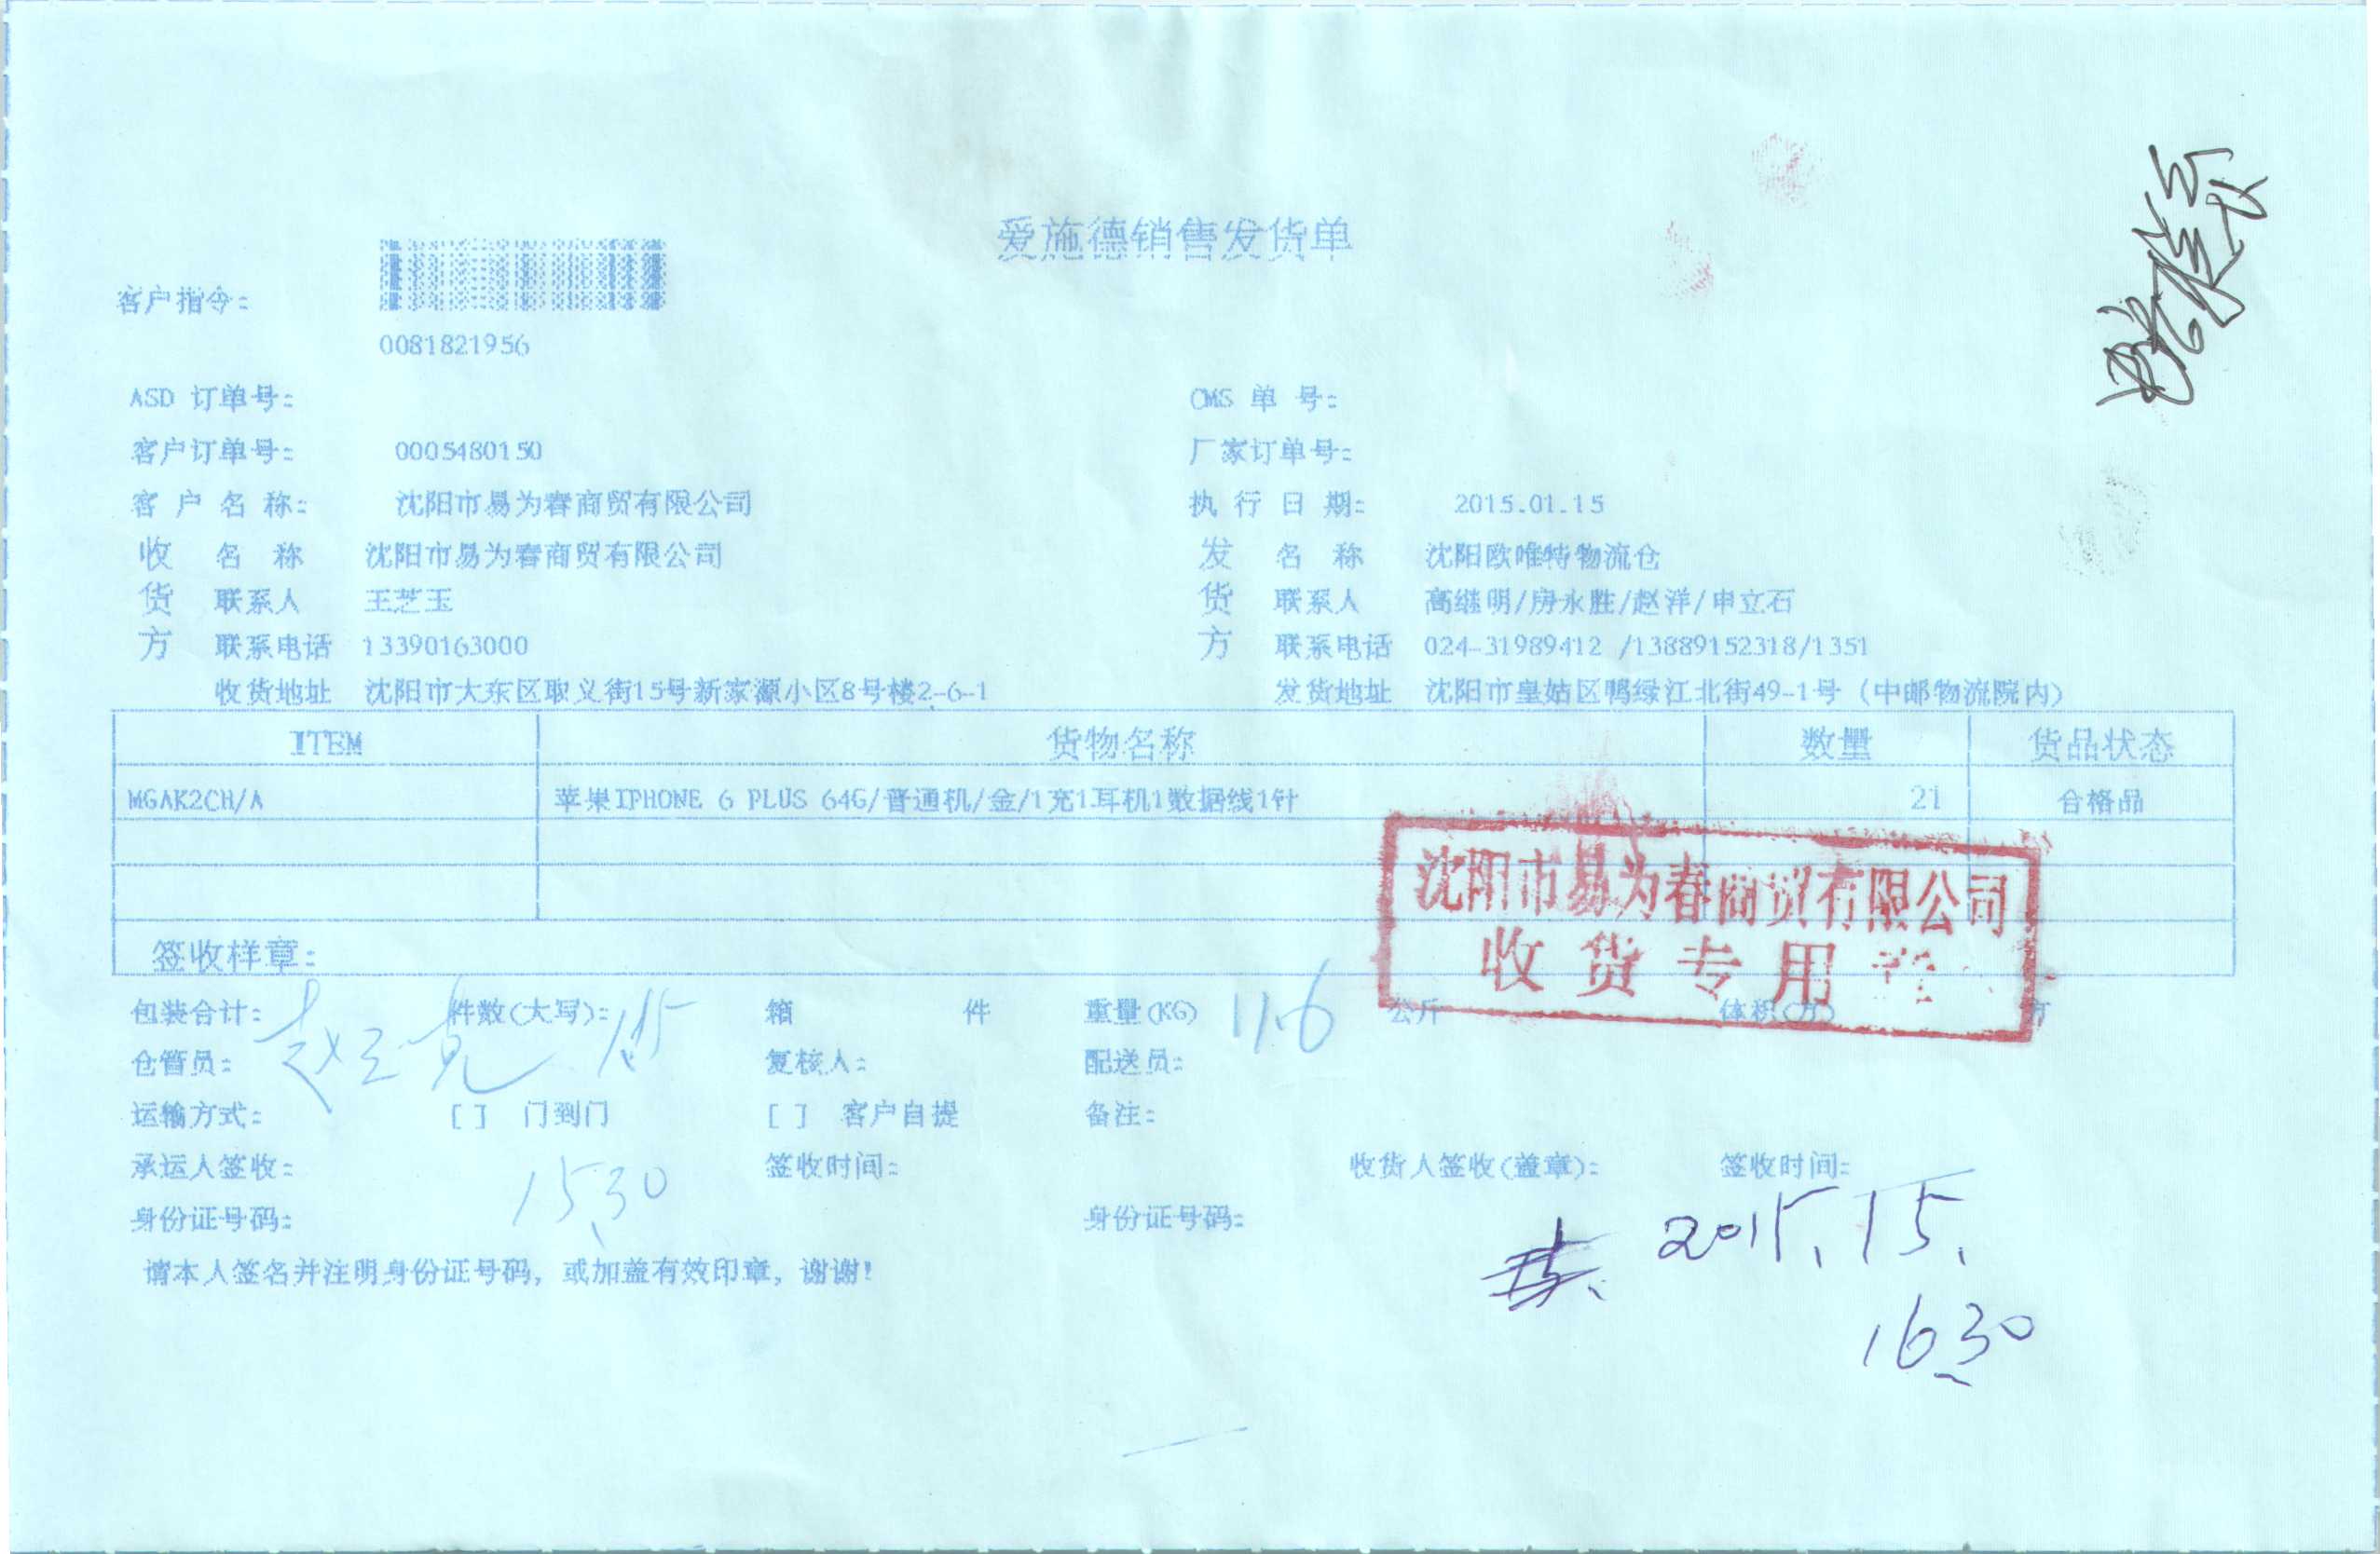 爱施德销售发货单
客户指令:
0081821956
ASD 订单号: OMS 单 号:
客户订单号: 0005480150 厂家订单号:
客 户 名 称: 沈阳市易为春商贸有限公司 执 行 日 期: 2015.01.15
收 名 称 沈阳市易为春商贸有限公司 发 名 称 沈阳欧唯特物流仓
货 联系人 王芝玉 货 联系人 高继明/房永胜/赵洋/申立石
方 联系电话 13390163000 方 联系电话 024-31989412 /13889152318/1351
收货地址 沈阳市大东区取义街15号新家源小区8号楼2-6-1 发货地址 沈阳市皇姑区鸭绿江北街49-1号 (中邮物流院内)
ITEM 货物名称 数量 货品状态
MGAK2CH/A 苹果IPHONE 6 PLUS 64G/普通机/金/1充1耳机1数据线1针 21 合格品
沈阳市易为春商贸有限公司
收货专用章
签收样章:
包装合计: 件数(大写): 箱 件 重量(KG) 11.6 公斤 体积(方) 方
仓管员: 复核人: 配送员:
运输方式: [ ] 门到门 [ ] 客户自提 备注:
承运人签收: 签收时间: 收货人签收(盖章): 签收时间:
15.30
身份证号码: 身份证号码:
2015.1.15.
请本人签名并注明身份证号码, 或加盖有效印章, 谢谢!
16.30